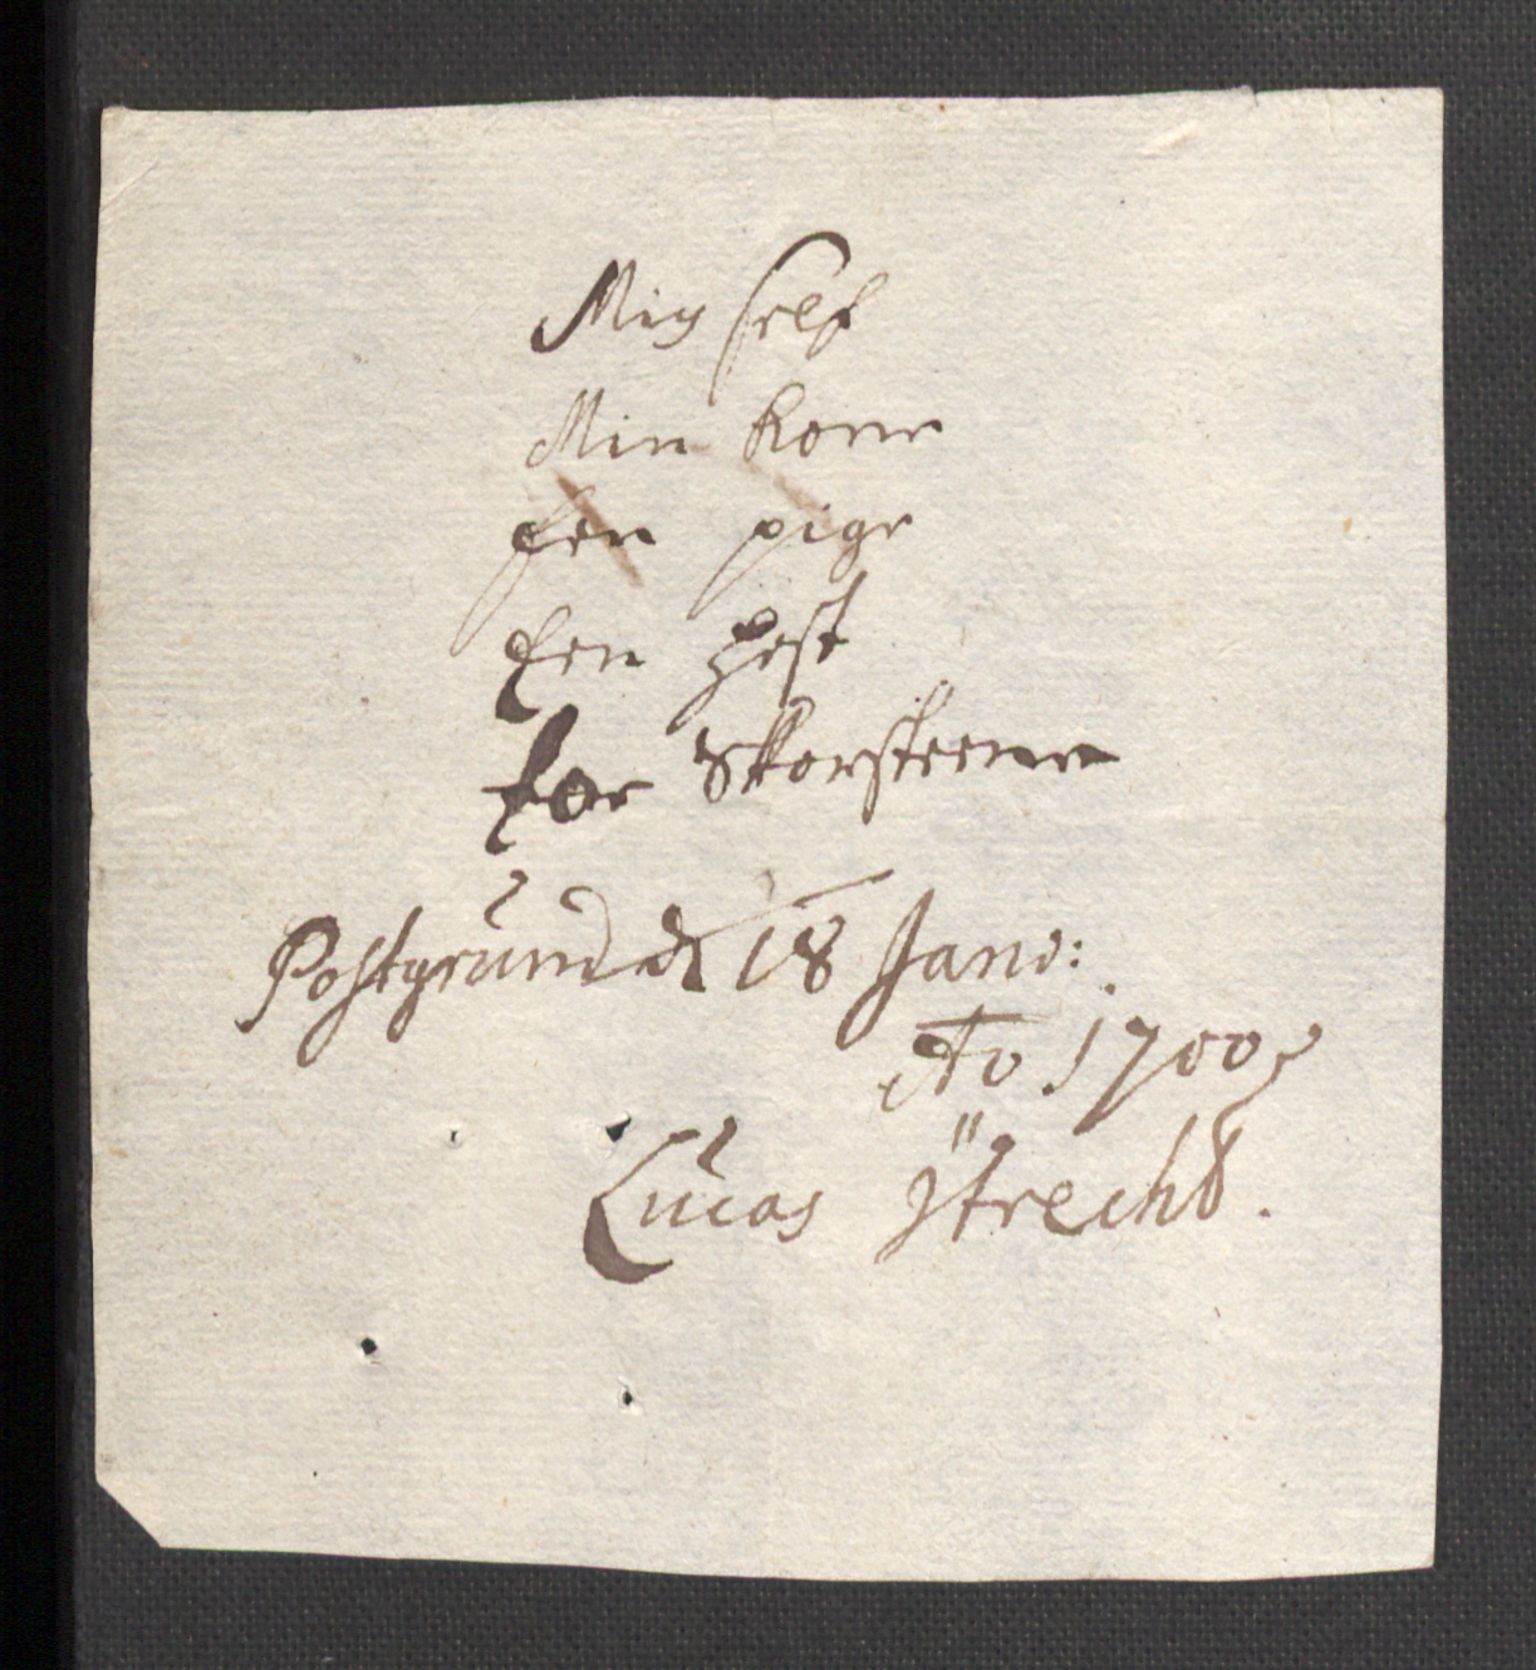 Mig self
Min kone
Een pige
Een hest
For Skorsteene
Postgrund d 18 Janv:
Ao 1700
Lucas ÿtrecht.